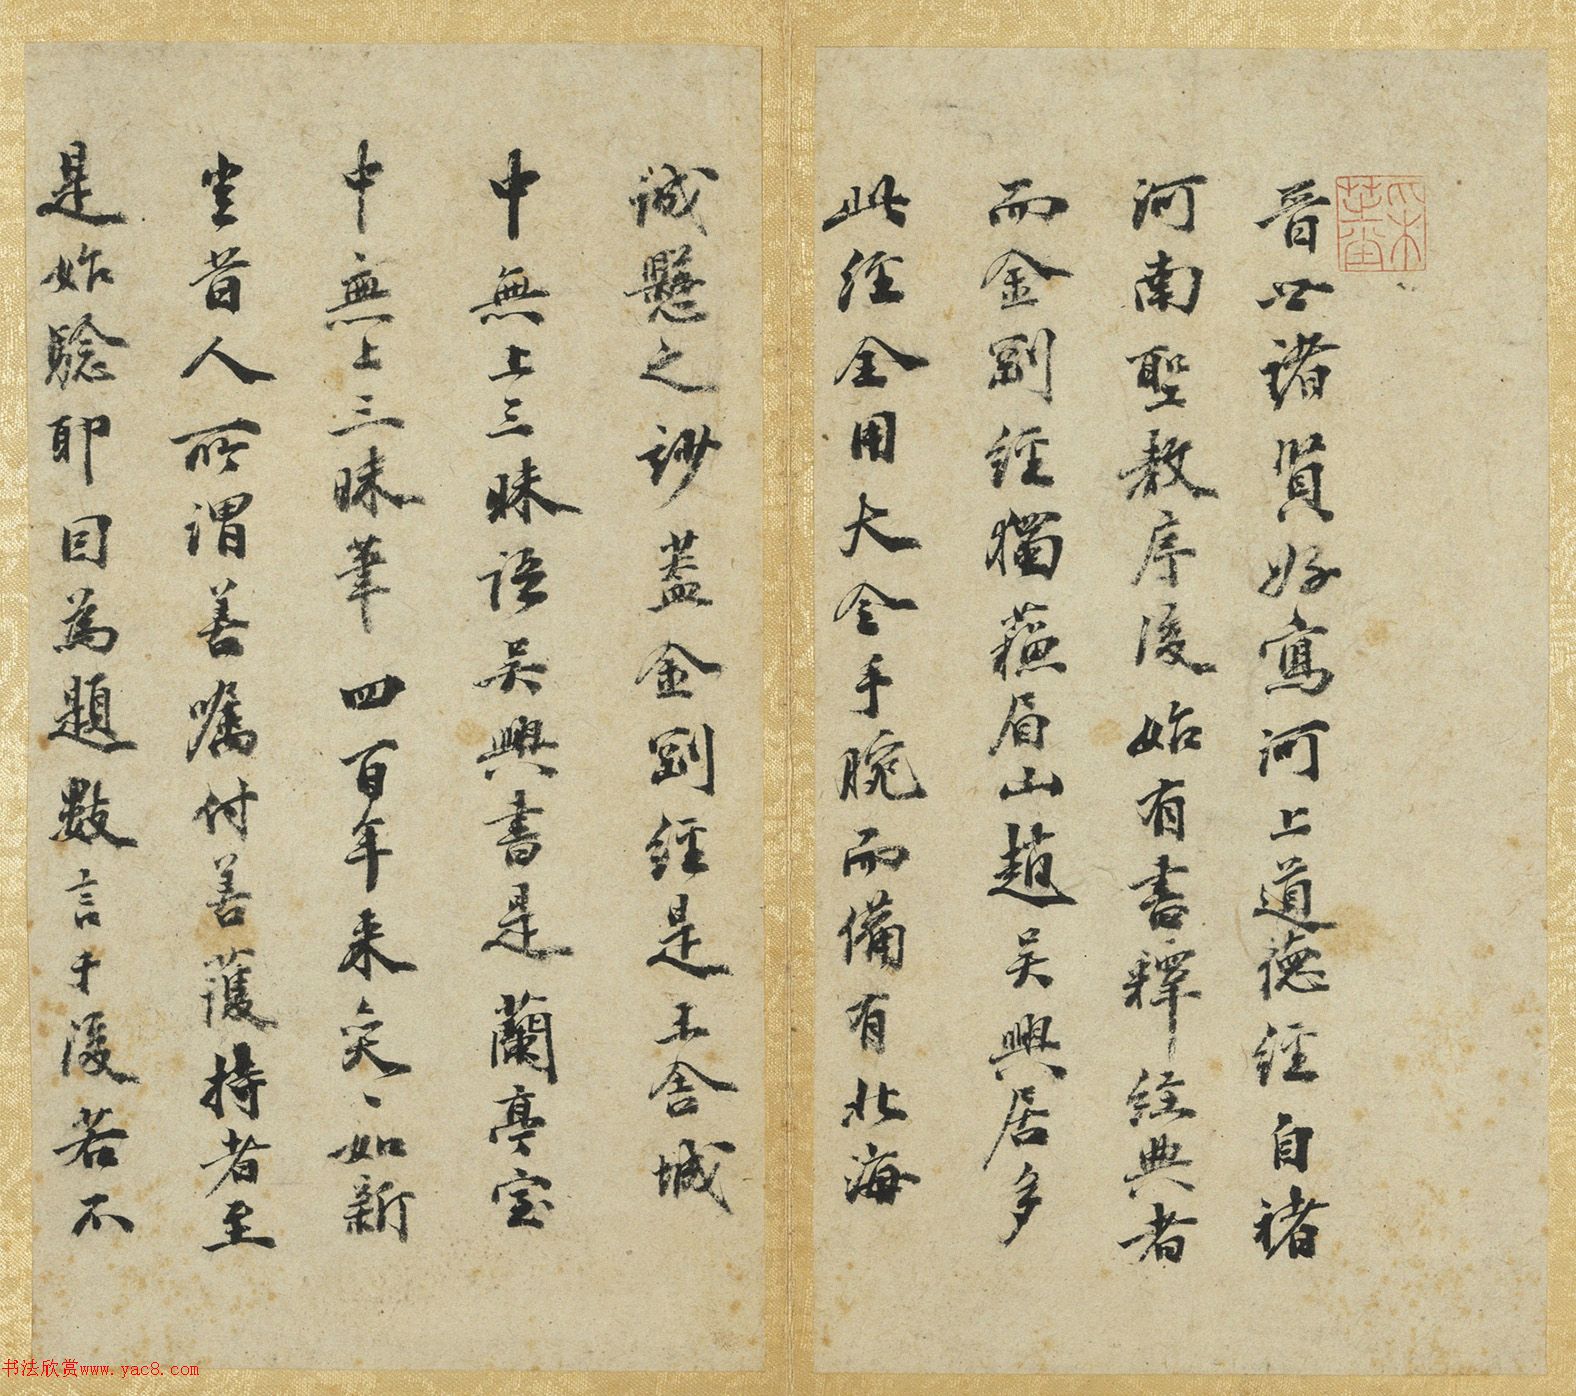 晉世諸賢好寫河上道德經自褚
河南聖教序後始有書釋經典者
而金剛經獨蘓眉山趙吳興居多
此經全用大令手腕而備有北海
誠懸之玅蓋金剛經是王舍城
中無上三昧語吳興書是蘭亭室
中無上三昧筆四百年来奕〻如新
坐昔人所謂善囑付善護持者至
是始驗耶因為題數言于後若不
书法欣赏www.yac8.com